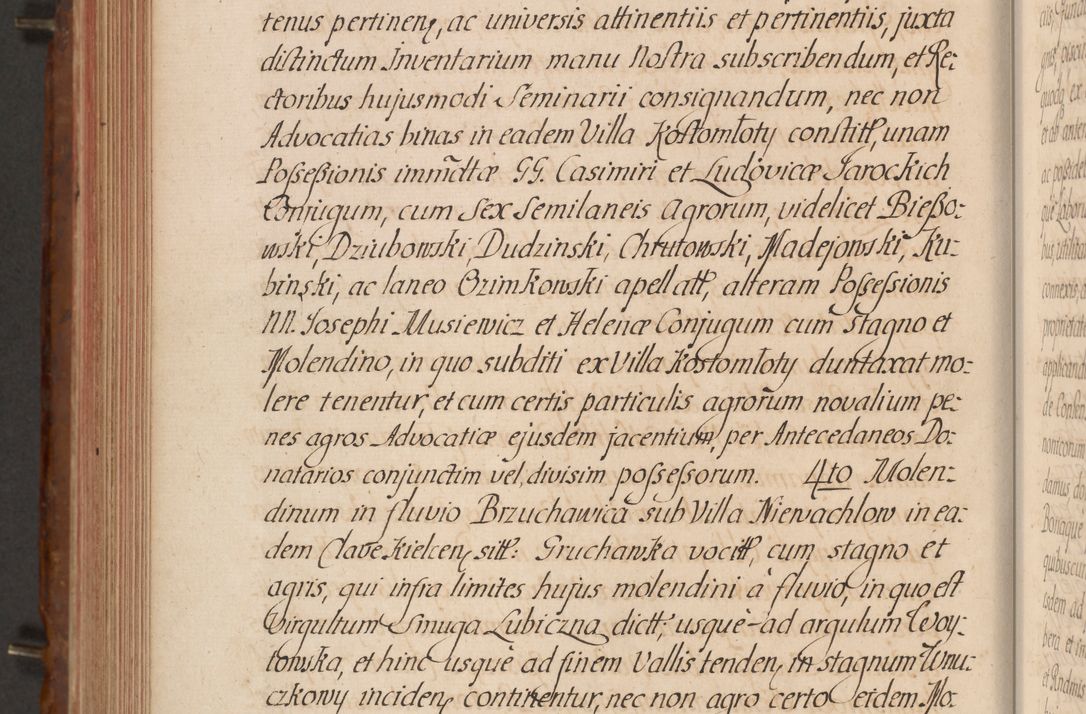 tenus pertinenꝫ, ac universis attinentiis et pertinentiis, juxta
distinctum Inventarium manu Nostra subscribendum, et Re-
ctoribus hujusmodi Seminarii consignandum, nec non
Advocatias binas in eadem Villa Kostomłoty constitt, unam
Possessionis immdtæ GG. Casimiri et Ludovicæ Jarockich
Conjugum, cum Sex Semilaneis Agrorum, videlicet Bięszo-
wski, Dziubowski, Dudzinski, Chrutowski, Madejowski, Ku-
binski, ac laneo Ozimkowski apellatt, alteram Possessionis
NN. Josephi Musiewicz et Helenæ Conjugum cum stagno et
Molendino, in quo subditi ex Villa Kostomłoty duntaxat mo-
lere tenentur, et cum certis particulis agrorum novalium pe-
nes agros Advocatiæ ejusdem jacentium, per Antecedaneos Do-
natarios conjunctim vel divisim possessorum. 4to Molen-
dinum in fluvio Brzuchawica sub Villa Niewachlow in ea-
dem Clave Kielcenꝫ sitt: Gruchawka vocitt, cum stagno et
agris, qui infra limites hujus molendini à fluvio, in quo est
Virgultum Smuga Lubiczna dictt, usque-ad argulum Woy-
towska, et hinc usque ad finem Vallis tendenꝫ in stagnum Wnu-
czkowy incidenꝫ continentur, nec non agro certo eidem Mo-